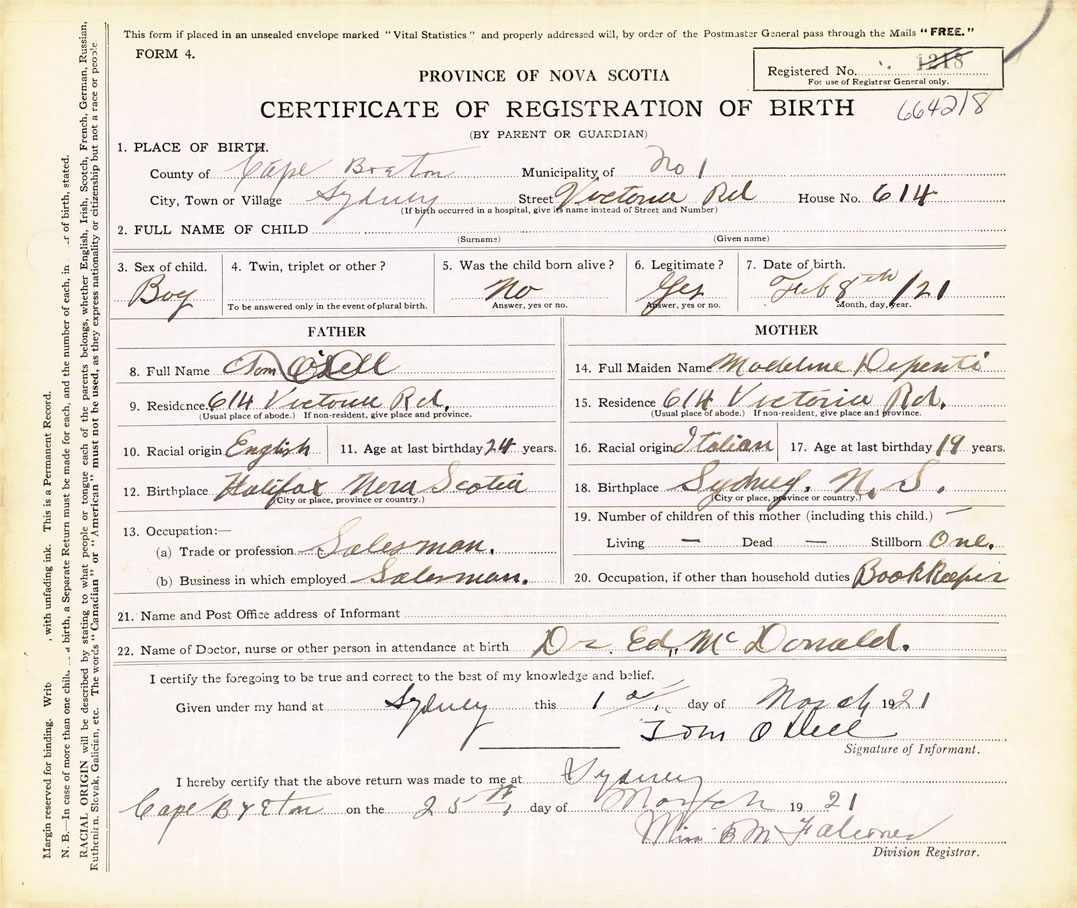 This form if placed in an unsealed envelope marked "Vital Statistics" and properly addressed will, by order of the Postmaster General pass through the Mails "FREE."
FORM 4.
Registered No. 1218
For use of Registrar General only.
PROVINCE OF NOVA SCOTIA
CERTIFICATE OF REGISTRATION OF BIRTH
664218
(BY PARENT OR GUARDIAN)
1. PLACE OF BIRTH.
County of Cape Breton Municipality of No 1
City, Town or Village Sydney Street Victoria Rd House No. 614
(If birth occurred in a hospital, give its name instead of Street and Number)
2. FULL NAME OF CHILD
(Surname) (Given name)
3. Sex of child. 4. Twin, triplet or other? 5. Was the child born alive? 6. Legitimate? 7. Date of birth.
Boy No Yes Feb 8th/21
To be answered only in the event of plural birth. Answer, yes or no. Answer, yes or no. Month, day, year.
FATHER MOTHER
8. Full Name Tom O'Dell 14. Full Maiden Name Madeline Depenti
9. Residence. 614 Victoria Rd. 15. Residence 614 Victoria Rd.
(Usual place of abode.) If non-resident, give place and province. (Usual place of abode.) If non-resident, give place and province.
10. Racial origin English 11. Age at last birthday 24 years. 16. Racial origin Italian 17. Age at last birthday 19 years.
12. Birthplace Halifax Nova Scotia 18. Birthplace Sydney, N. S.
(City or place, province or country.) (City or place, province or country.)
13. Occupation:— 19. Number of children of this mother (including this child.) —
(a) Trade or profession Salesman. Living — Dead — Stillborn One.
(b) Business in which employed Salesman. 20. Occupation, if other than household duties BookKeeper
21. Name and Post Office address of Informant
22. Name of Doctor, nurse or other person in attendance at birth Dr. Ed, McDonald.
I certify the foregoing to be true and correct to the best of my knowledge and belief.
Given under my hand at Sydney this 1st day of March 1921
Tom O'Dell
Signature of Informant.
I hereby certify that the above return was made to me at Sydney
Cape Breton on the 25th day of March 1921
Miss B M Falconer
Division Registrar.
Margin reserved for binding. with unfading ink. This is a Permanent Record.
N. B.—In case of more than one birth, a Separate Return must be made for each, and the number of each, in of birth, stated.
RACIAL ORIGIN will be described by stating to what people or tongue each of the parents belongs, whether English, Irish, Scotch, French, German, Russian,
Ruthenian, Slovak, Galician, etc. The words "Canadian" or "American" must not be used, as they express nationality or citizenship but not a race or people.